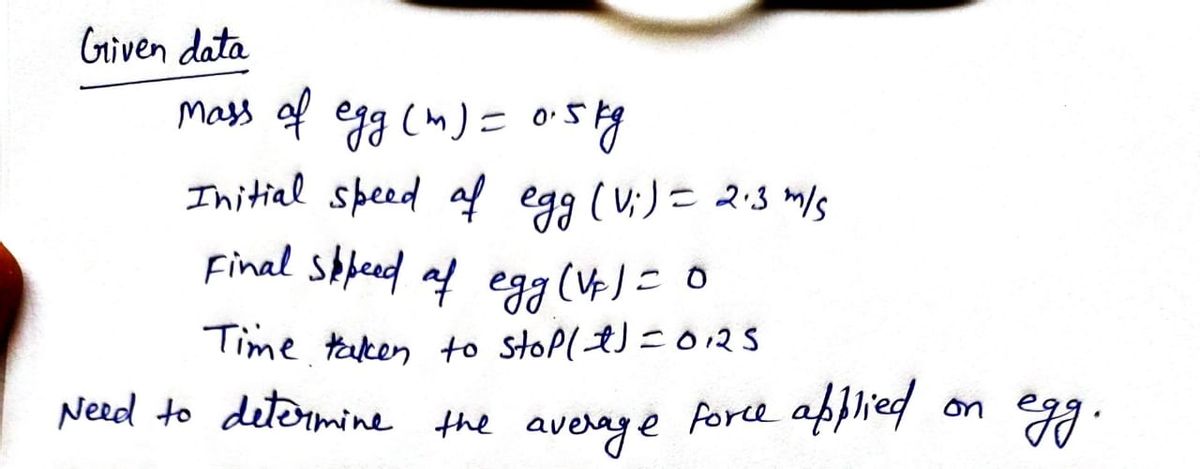 Given data
Mass of egg (m) = 0.5 kg
Initial speed of egg (Vi) = 2.3 m/s
Final speed of egg (VF) = 0
Time taken to stop(t) = 0.2 s
Need to determine the average force applied on egg.